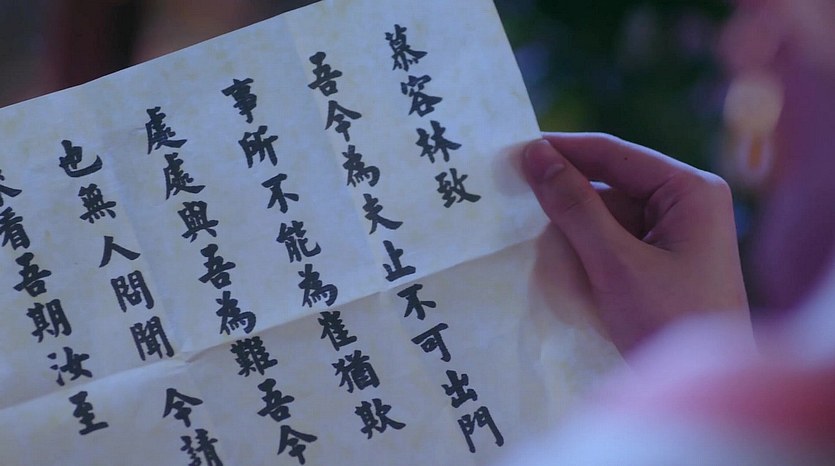 慕容林致
吾今為夫止不可出門
事所不能為崔猶欺
處處與吾為難吾今
也無人問聞今請
看吾期汝至